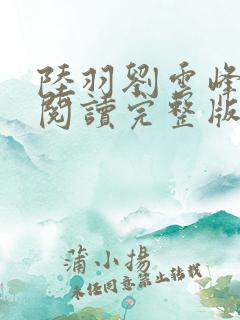 陸羽劉雲峰
閱讀完整版
蒲小揚
未經同意禁止轉載